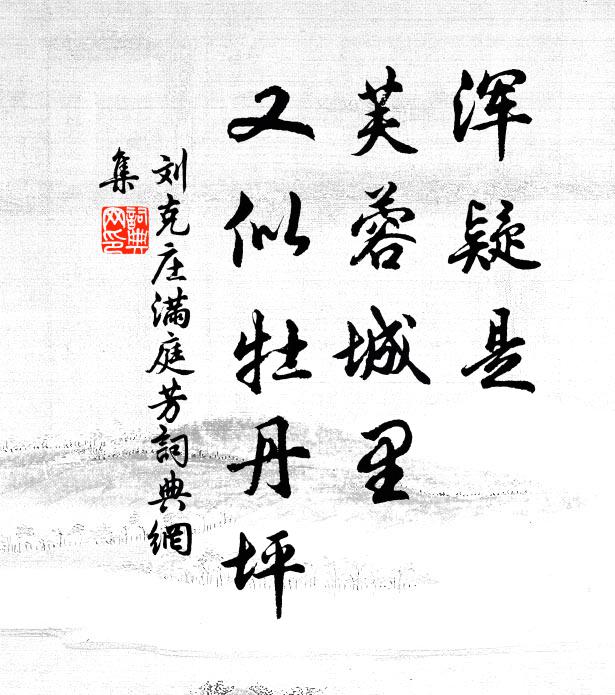 浑疑是
芙蓉城里
又似牡丹坪
刘克庄满庭芳詞典網
集
詞典网印